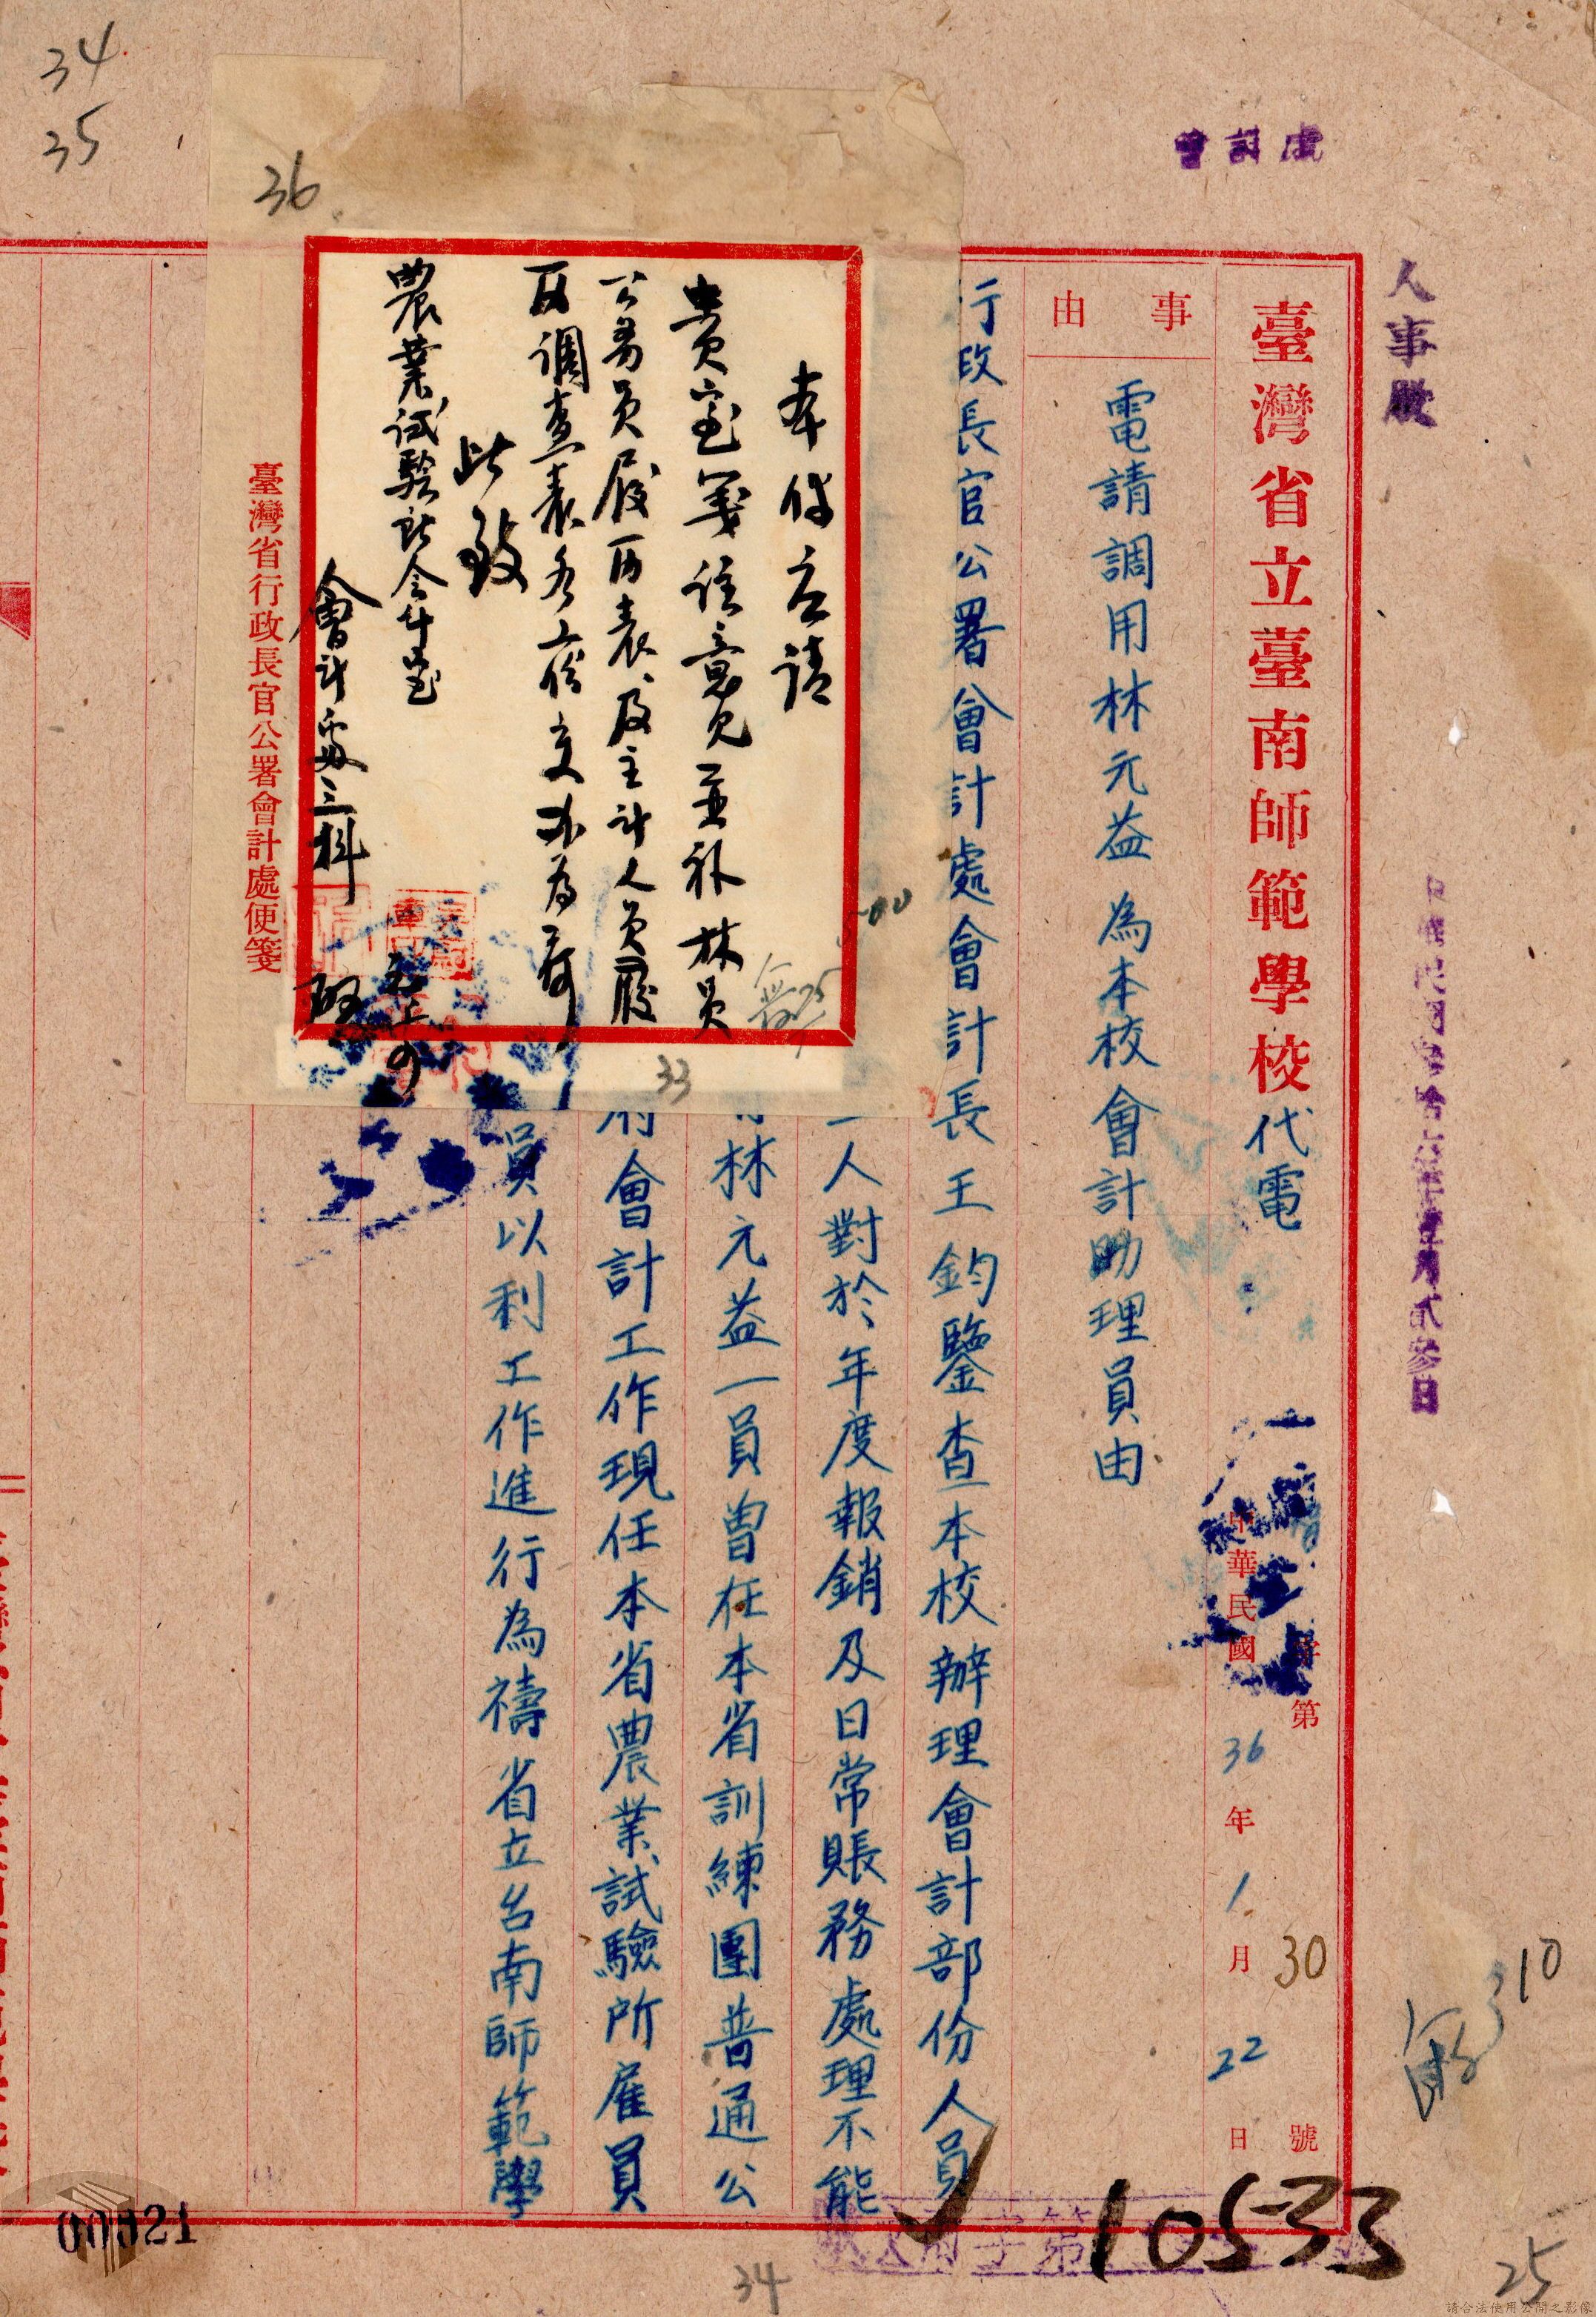 34
35
36
處計會
人事股
臺灣省立臺南師範學校代電
字第 30 號
中華民國 36 年 1 月 22 日
事由
電請調用林元益為本校會計助理員由
行政長官公署會計處會計長王鈞鑒查本校辦理會計部份人員
一人對於年度報銷及日常賬務處理不能
林元益一員曾在本省訓練團普通公
府會計工作現任本省農業試驗所雇員
員以利工作進行為禱省立台南師範學
奉付应請
貴室簽註意見並補林員
公务員履历表及主计人員履
历調查表各二份交办為荷
此致
農業試驗所会计室
會计處三科 啟
臺灣省行政長官公署會計處便箋
33
310
字第
10533
34
25
00021
請合法使用公開之影像